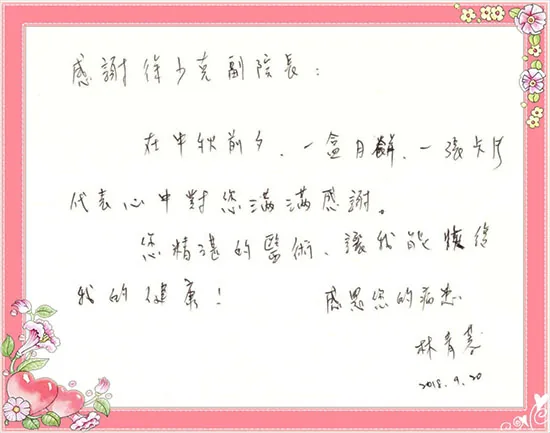 感謝徐少克副院長：
在中秋前夕、一盒月餅、一張卡片
代表心中對您滿滿感謝。
您精湛的醫術、讓我能恢復
我的健康！ 感恩您的病患
林青蓉
2018.9.20